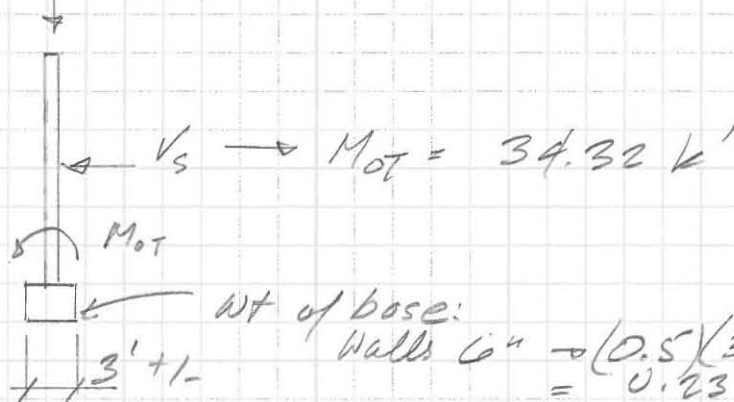 Vs → MOT = 34.32 k'
MOT
wt of base:
Walls 6" → (0.5)(3
= 0.23
3' +/-